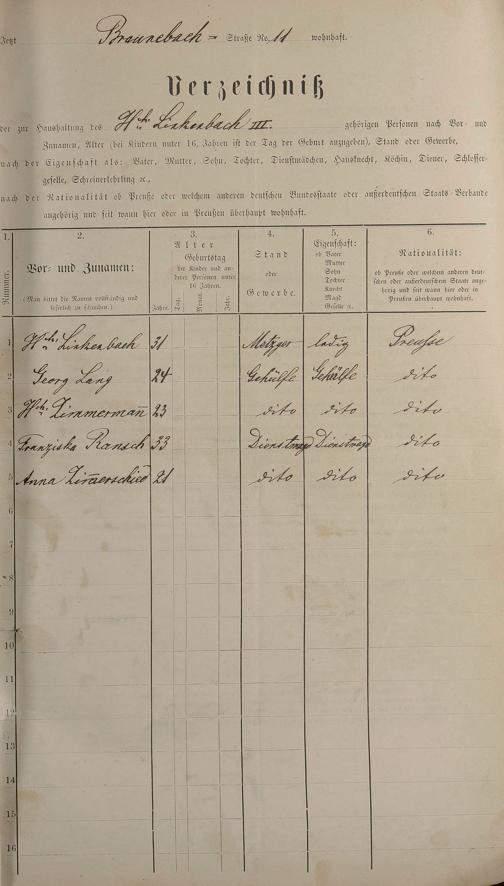 Jetzt Braunebach= Straße No. 11 wohnhaft.
Verzeichniß
der zur Haushaltung des Hch. Linkenbach III. gehörigen Personen nach Vor- und
Zunamen, Alter (bei Kindern unter 16 Jahren ist der Tag der Geburt anzugeben), Stand oder Gewerbe,
nach der Eigenschaft als: Vater, Mutter, Sohn, Tochter, Dienstmädchen, Hausknecht, Köchin, Diener, Schlosser-
geselle, Schreinerlehrling ꝛc.,
nach der Nationalität ob Preuße oder welchem anderen deutschen Bundesstaate oder außerdeutschen Staats-Verbande
angehörig und seit wann hier oder in Preußen überhaupt wohnhaft.
1. 2. 3. 4. 5. 6.
Nummer.
Vor- und Zunamen:
(Man bittet die Namen vollständig und
leserlich zu schreiben.)
Alter
Geburtstag
der Kinder und an-
derer Personen unter
16 Jahren.
Jahre. Tag. Monat. Jahr.
Stand
oder
Gewerbe.
Eigenschaft:
ob Vater
Mutter
Sohn
Tochter
Knecht
Magd
Geselle ꝛc.
Nationalität:
ob Preuße oder welchem anderen deut-
schen oder außerdeutschen Staate ange-
hörig und seit wann hier oder in
Preußen überhaupt wohnhaft.
1 Hch. Linkenbach 31 Metzger ledig Preusse
2 Georg Lang 24 Gehülfe Gehülfe dito
3 Hch. Zimmermañ 23 dito dito dito
4 Franziska Ransch 33 Dienstmagd Dienstmagd dito
5 Anna Zim̄erschied 21 dito dito dito
6
7
8
9
10
11
12
13
14
15
16